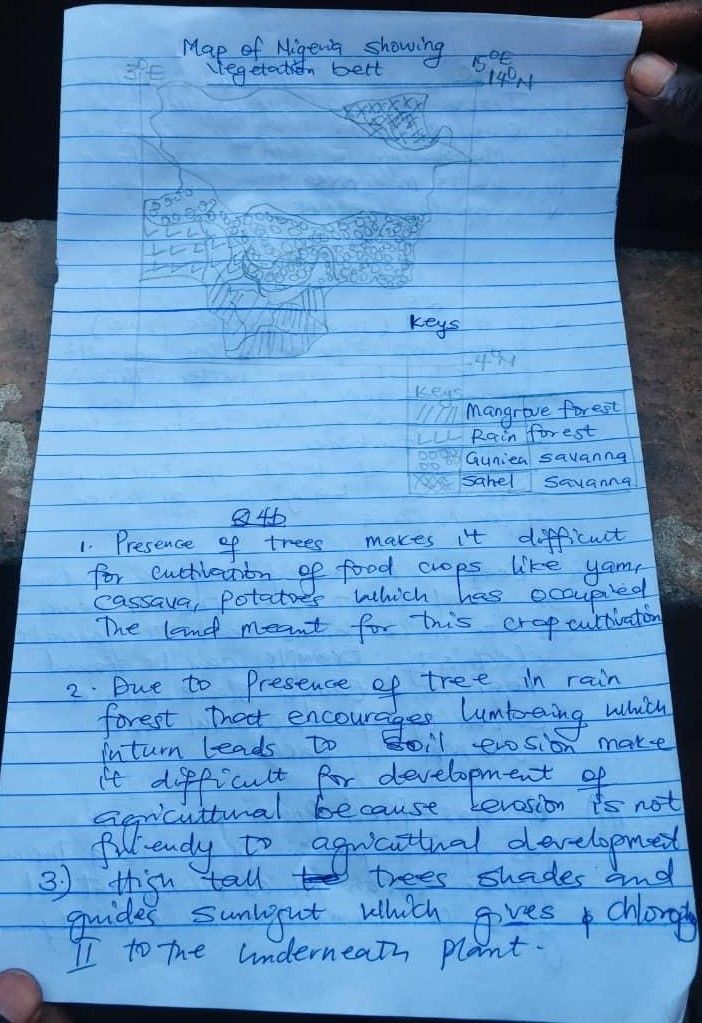 Map of Nigeria showing
Vegetation belt
3°E
15°E
14°N
Keys
4°N
Keys
Mangrove forest
Rain forest
Guniea savanna
Sahel Savanna
Q4b
1. Presence of trees makes it difficult
for cultivation of food crops like yam,
cassava, potatoes which has occupied
The land meant for this crop cultivation
2. Due to Presence of tree in rain
forest That encourages lumbering which
inturn leads to Soil erosion make
it difficult for development of
agricultural because erosion is not
friendy to agricultural development
3.) High tall trees shades and
guides sunlight which gives chlorophy
II to the underneath plant.